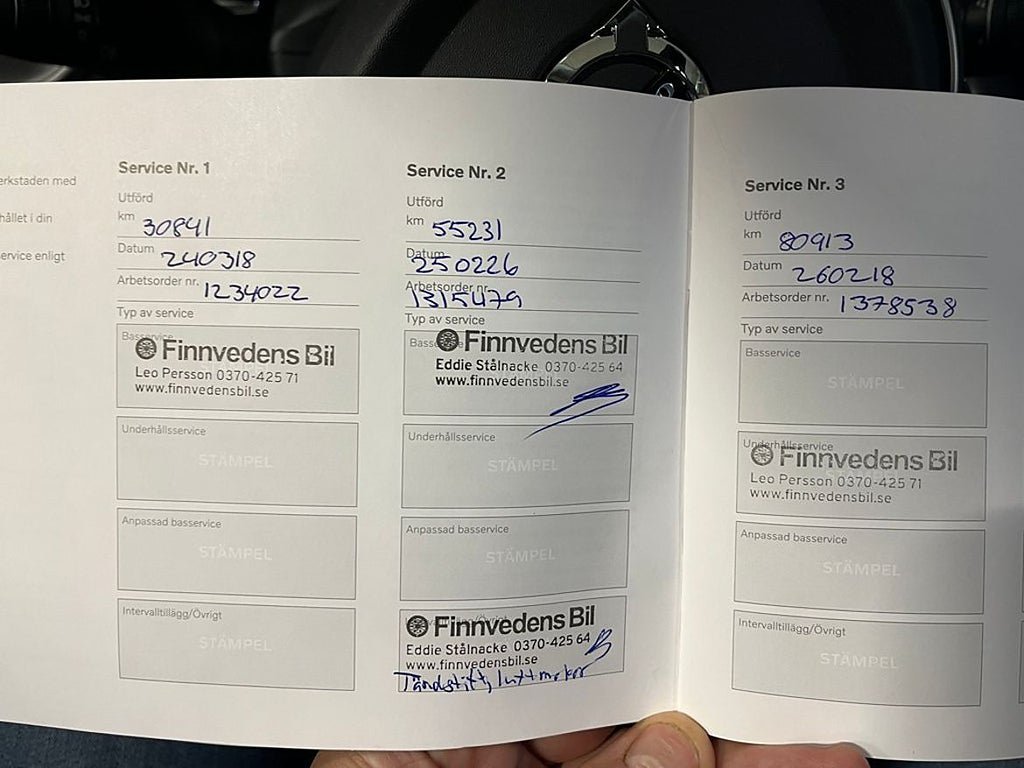 erkstaden med
hållet i din
ervice enligt
Service Nr. 1
Utförd
km 30841
Datum 240318
Arbetsorder nr. 1234022
Typ av service
Basservice
Finnvedens Bil
Leo Persson 0370-425 71
www.finnvedensbil.se
Underhållsservice
STÄMPEL
Anpassad basservice
STÄMPEL
Intervalltillägg/Övrigt
STÄMPEL
Service Nr. 2
Utförd
km 55231
Datum 250226
Arbetsorder nr. 1315479
Typ av service
Finnvedens Bil
Eddie Stålnacke 0370-425 64
www.finnvedensbil.se
Underhållsservice
STÄMPEL
Anpassad basservice
STÄMPEL
Finnvedens Bil
Eddie Stålnacke 0370-425 64
www.finnvedensbil.se
Tändstift,
Service Nr. 3
Utförd
km 80913
Datum 260218
Arbetsorder nr. 1378538
Typ av service
Basservice
STÄMPEL
Underhållsservice
Finnvedens Bil
Leo Persson 0370-425 71
www.finnvedensbil.se
Anpassad basservice
STÄMPEL
Intervalltillägg/Övrigt
STÄMPEL